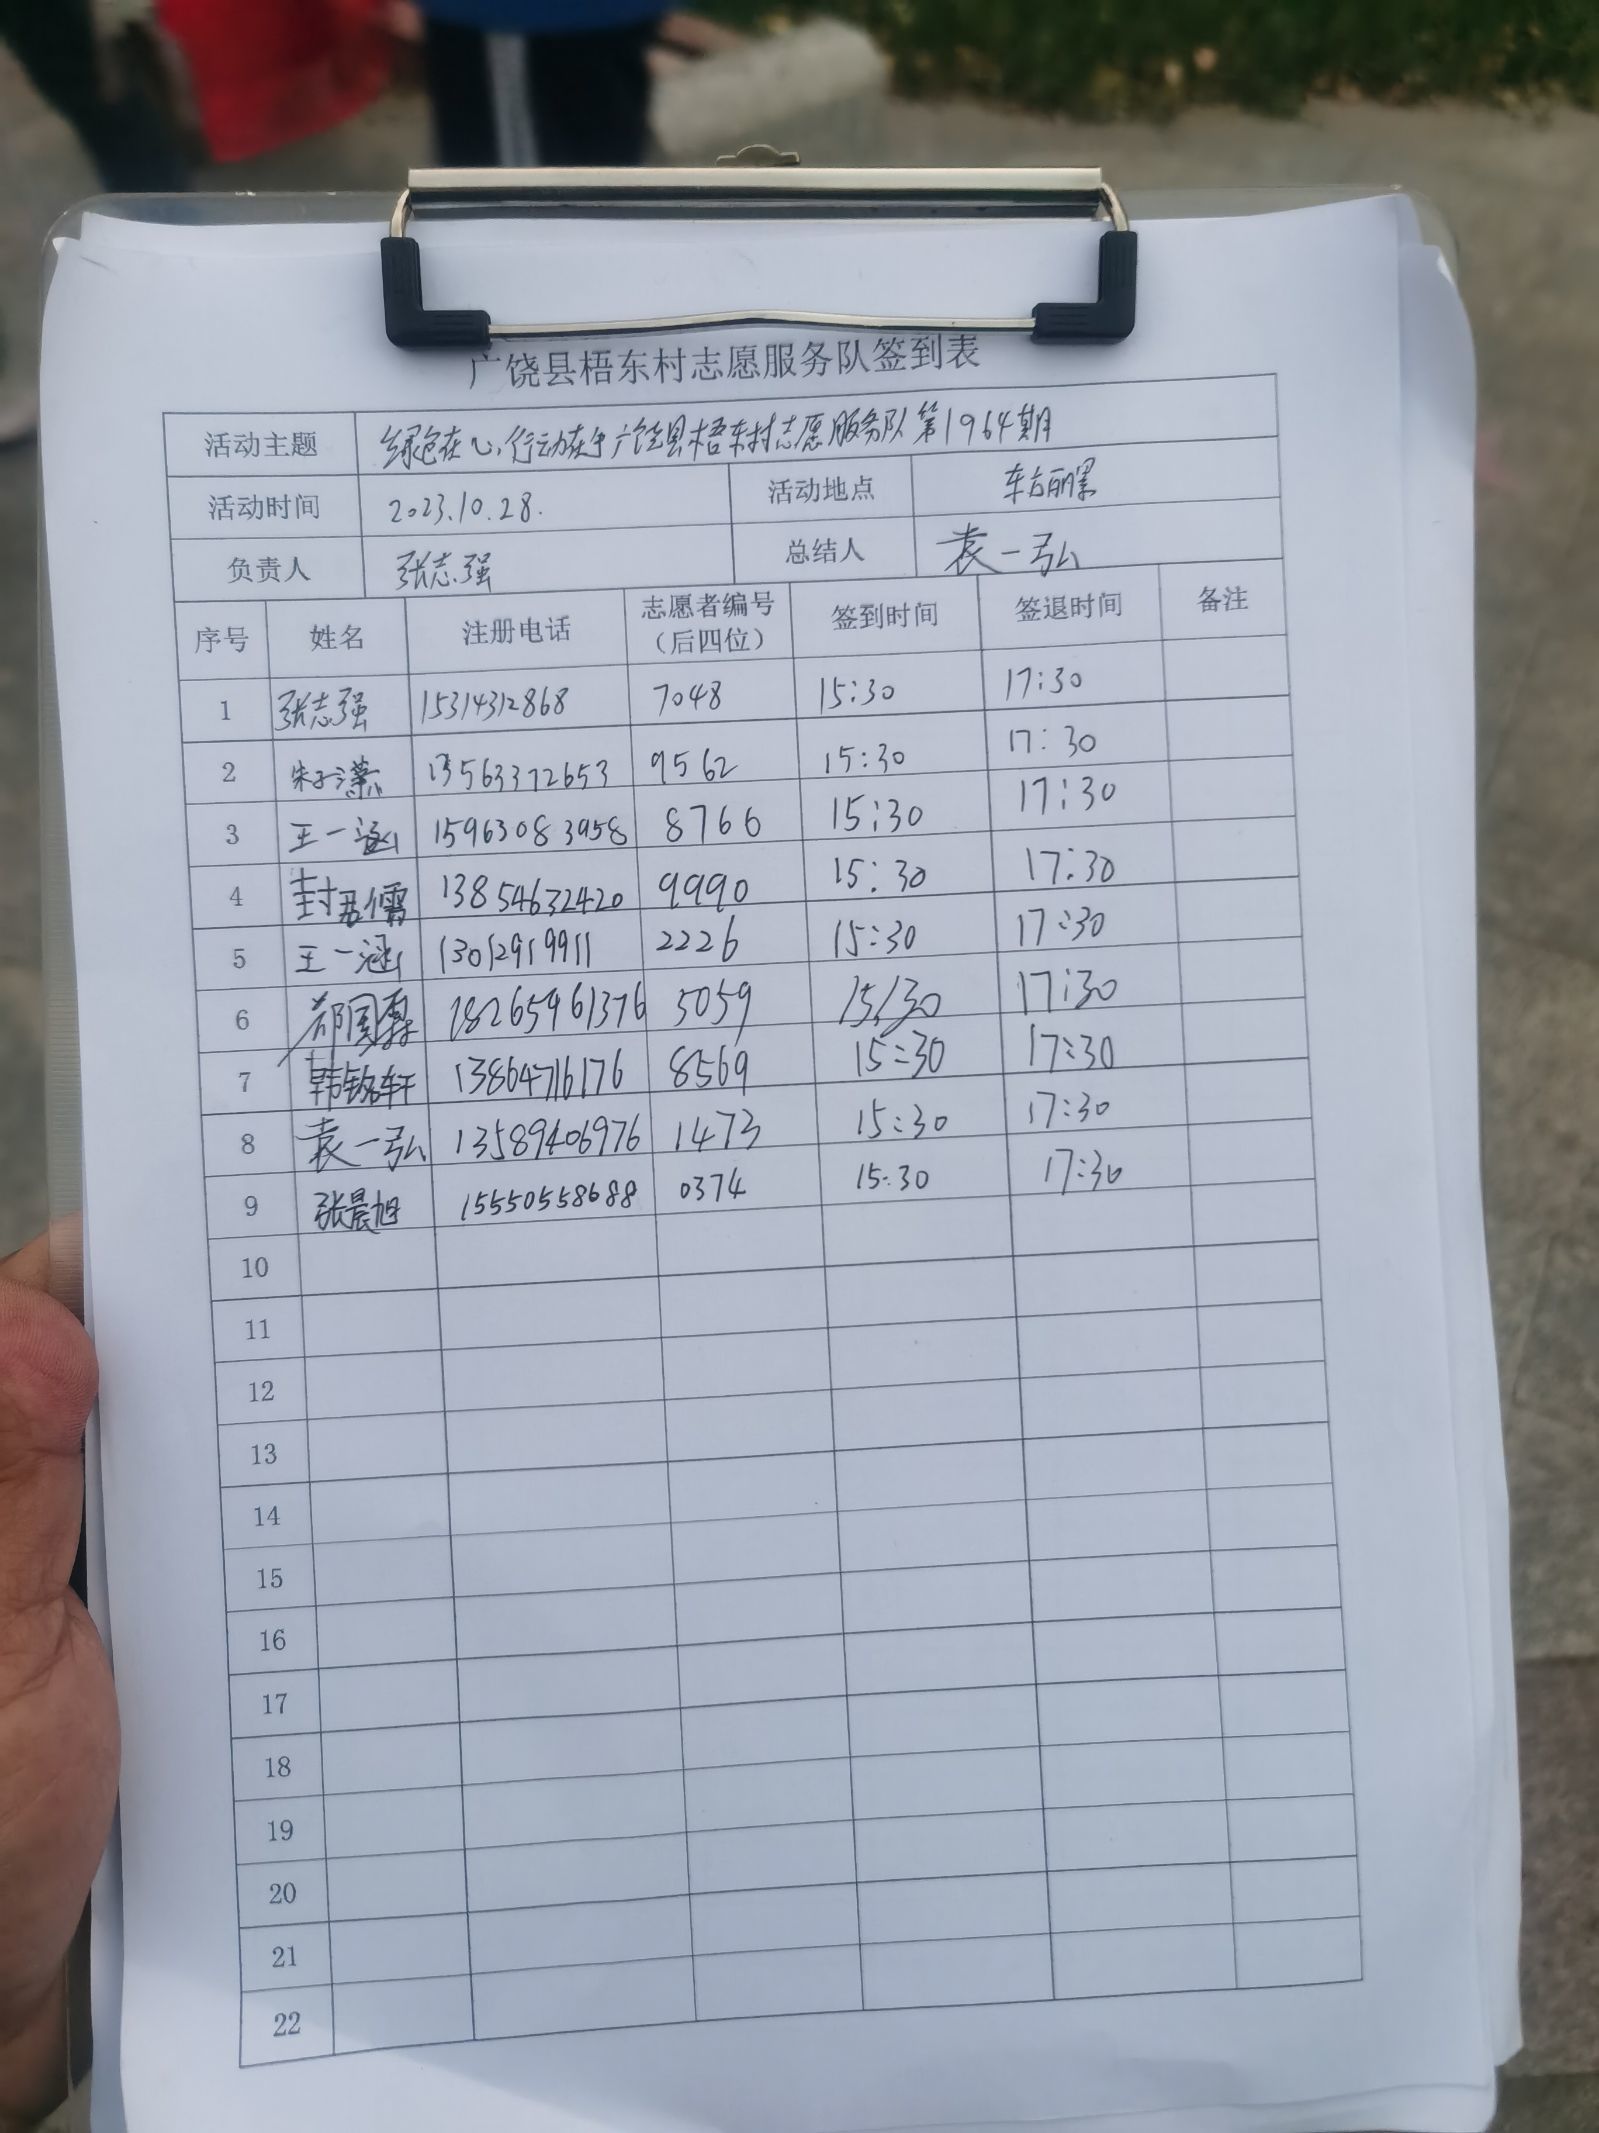 广饶县梧东村志愿服务队签到表
活动主题 绿色在心,行动在手广饶县梧东村志愿服务队第1964期
活动时间 2023.10.28. 活动地点
负责人 张志强 总结人 袁一弘
序号 姓名 注册电话 志愿者编号（后四位） 签到时间 签退时间 备注
1 张志强 15314312868 7048 15:30 17:30
2 13563372653 9562 15:30 17:30
3 王一涵 15963083958 8766 15:30 17:30
4 封君儒 13854632420 9990 15:30 17:30
5 王一涵 13012919911 2226 15:30 17:30
6 18265961376 5059 15:30 17:30
7 韩铭轩 13864716176 8569 15:30 17:30
8 袁一弘 13589406976 1473 15:30 17:30
9 张晨旭 15550558688 0374 15:30 17:30
10
11
12
13
14
15
16
17
18
19
20
21
22